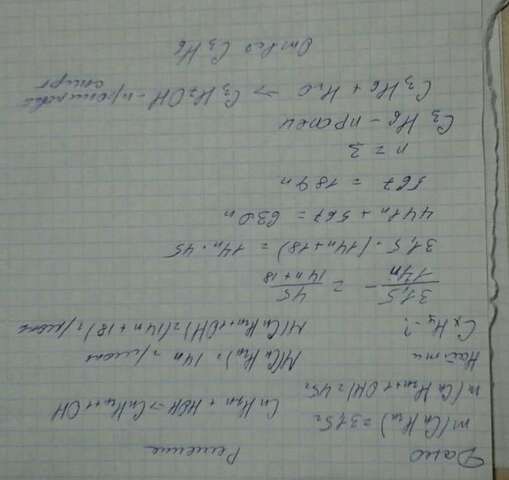 Дано Решение
m(CnH2n) = 31,5г CnH2n + HOH → CnH2n+1OH
m(CnH2n+1OH) = 45г
Найти M(CnH2n) = 14n г/моль
CxHy - ? M(CnH2n+1OH) = (14n + 18) г/моль
31,5 / 14n = 45 / 14n + 18
31,5 · (14n + 18) = 14n · 45
441n + 567 = 630n
567 = 189n
n = 3
C3H6 - пропен
C3H6 + H2O → C3H7OH -
спирт
Ответ C3H6